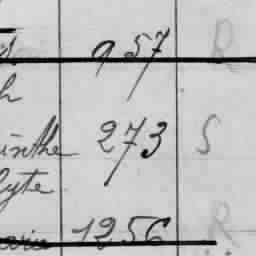 957 R
h
inthe 273 S
lyte
1256 R